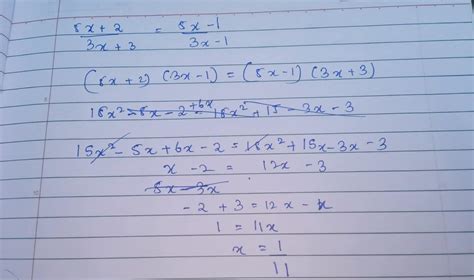 5x + 2 / 3x + 3 = 5x - 1 / 3x - 1
(5x + 2) (3x - 1) = (5x - 1) (3x + 3)
15x² - 5x - 2 + 6x = 15x² + 15 - 3x - 3
15x² - 5x + 6x - 2 = 15x² + 15x - 3x - 3
x - 2 = 12x - 3
5x - 3x
- 2 + 3 = 12x - x
1 = 11x
x = 1 / 11